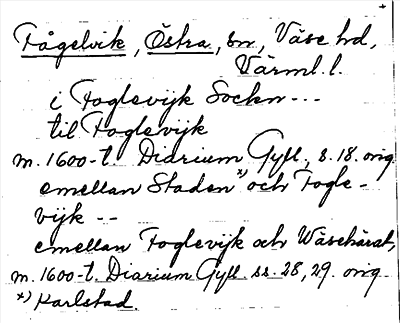 Fågelvik, Östra, sn, Väse hd,
Värml. l.
i Foglevijk Sockn---
til Foglevijk
m. 1600-t. Diarium Gyll., s. 18. orig.
emellan Staden*) och Fogle-
vijk --
emellan Foglevijk och Wäsehärat,
m. 1600-t. Diarium Gyll. ss. 28, 29. orig.
*) Karlstad.